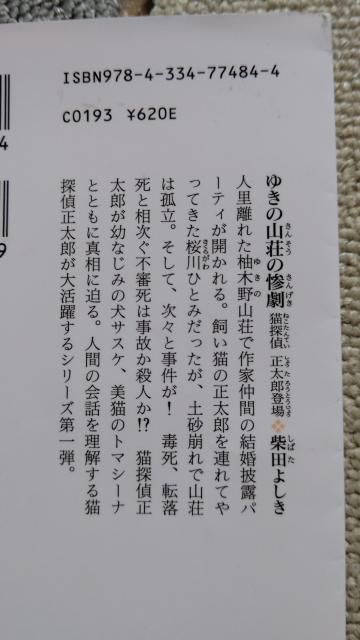 ISBN978-4-334-77484-4
C0193 ¥620E
ゆきの山荘の惨劇 猫探偵 正太郎登場 柴田よしき
人里離れた柚木野山荘で作家仲間の結婚披露パ
ーティが開かれる。飼い猫の正太郎を連れてや
ってきた桜川ひとみだったが、土砂崩れで山荘
は孤立。そして、次々と事件が! 毒死、転落
死と相次ぐ不審死は事故か殺人か!? 猫探偵正
太郎が幼なじみの犬サスケ、美猫のトマシーナ
とともに真相に迫る。人間の会話を理解する猫
探偵正太郎が大活躍するシリーズ第一弾。
4
9